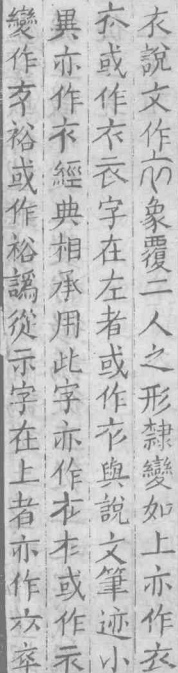 衣說文作𧘇象覆二人之形隸變如上亦作衣
衣或作衣衣字在左者或作衤與說文筆迹小
異亦作衣經典相承用此字亦作或作示
變作裕或作裕譌從示字在上者亦作卒